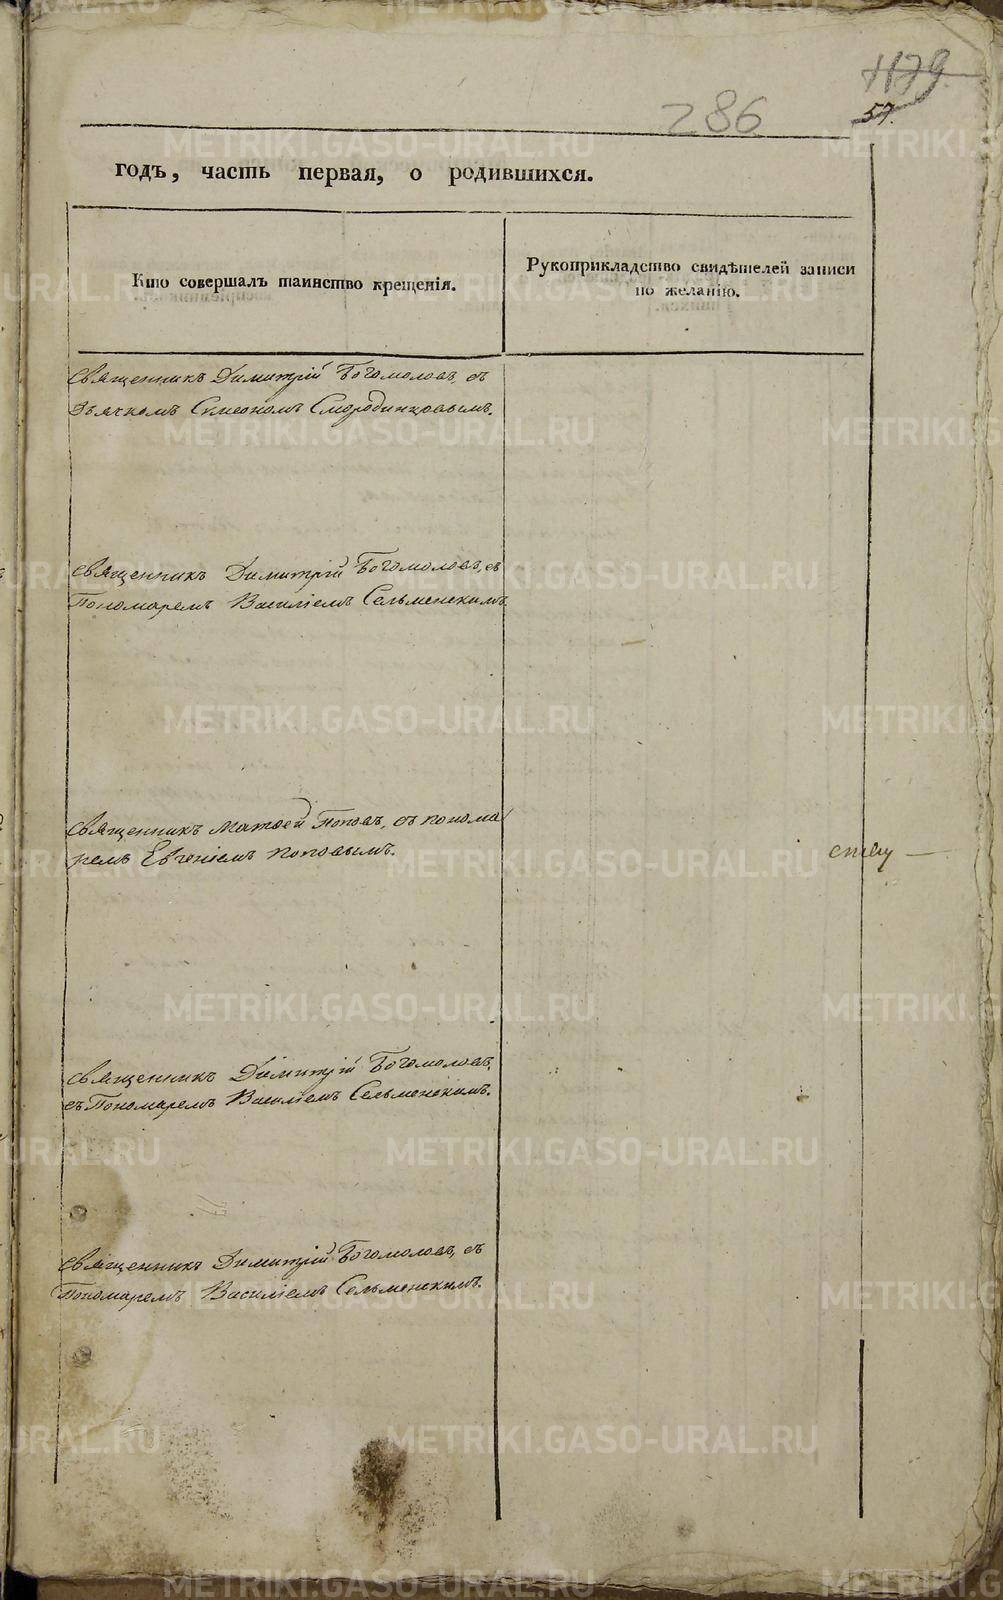 1179
286
57.
годъ, часть первая, о родившихся.
Кто совершалъ таинство крещенія.
Рукоприкладство свидѣтелей записи
по желанію.
Священникъ Димитрій Богомоловъ, съ
Дьячкомъ Симеономъ Смородинцовымъ.
Священникъ Димитрій Богомоловъ, съ
Пономаремъ Василіемъ Сельменскимъ.
Священникъ Матвей Поповъ, съ понома
ремъ Евгеніемъ Поповымъ.
Священникъ Димитрій Богомоловъ,
съ Пономаремъ Василіемъ Сельменскимъ.
Священникъ Димитрій Богомоловъ, съ
Пономаремъ Василіемъ Сельменскимъ.
METRIKI.GASO-URAL.RU